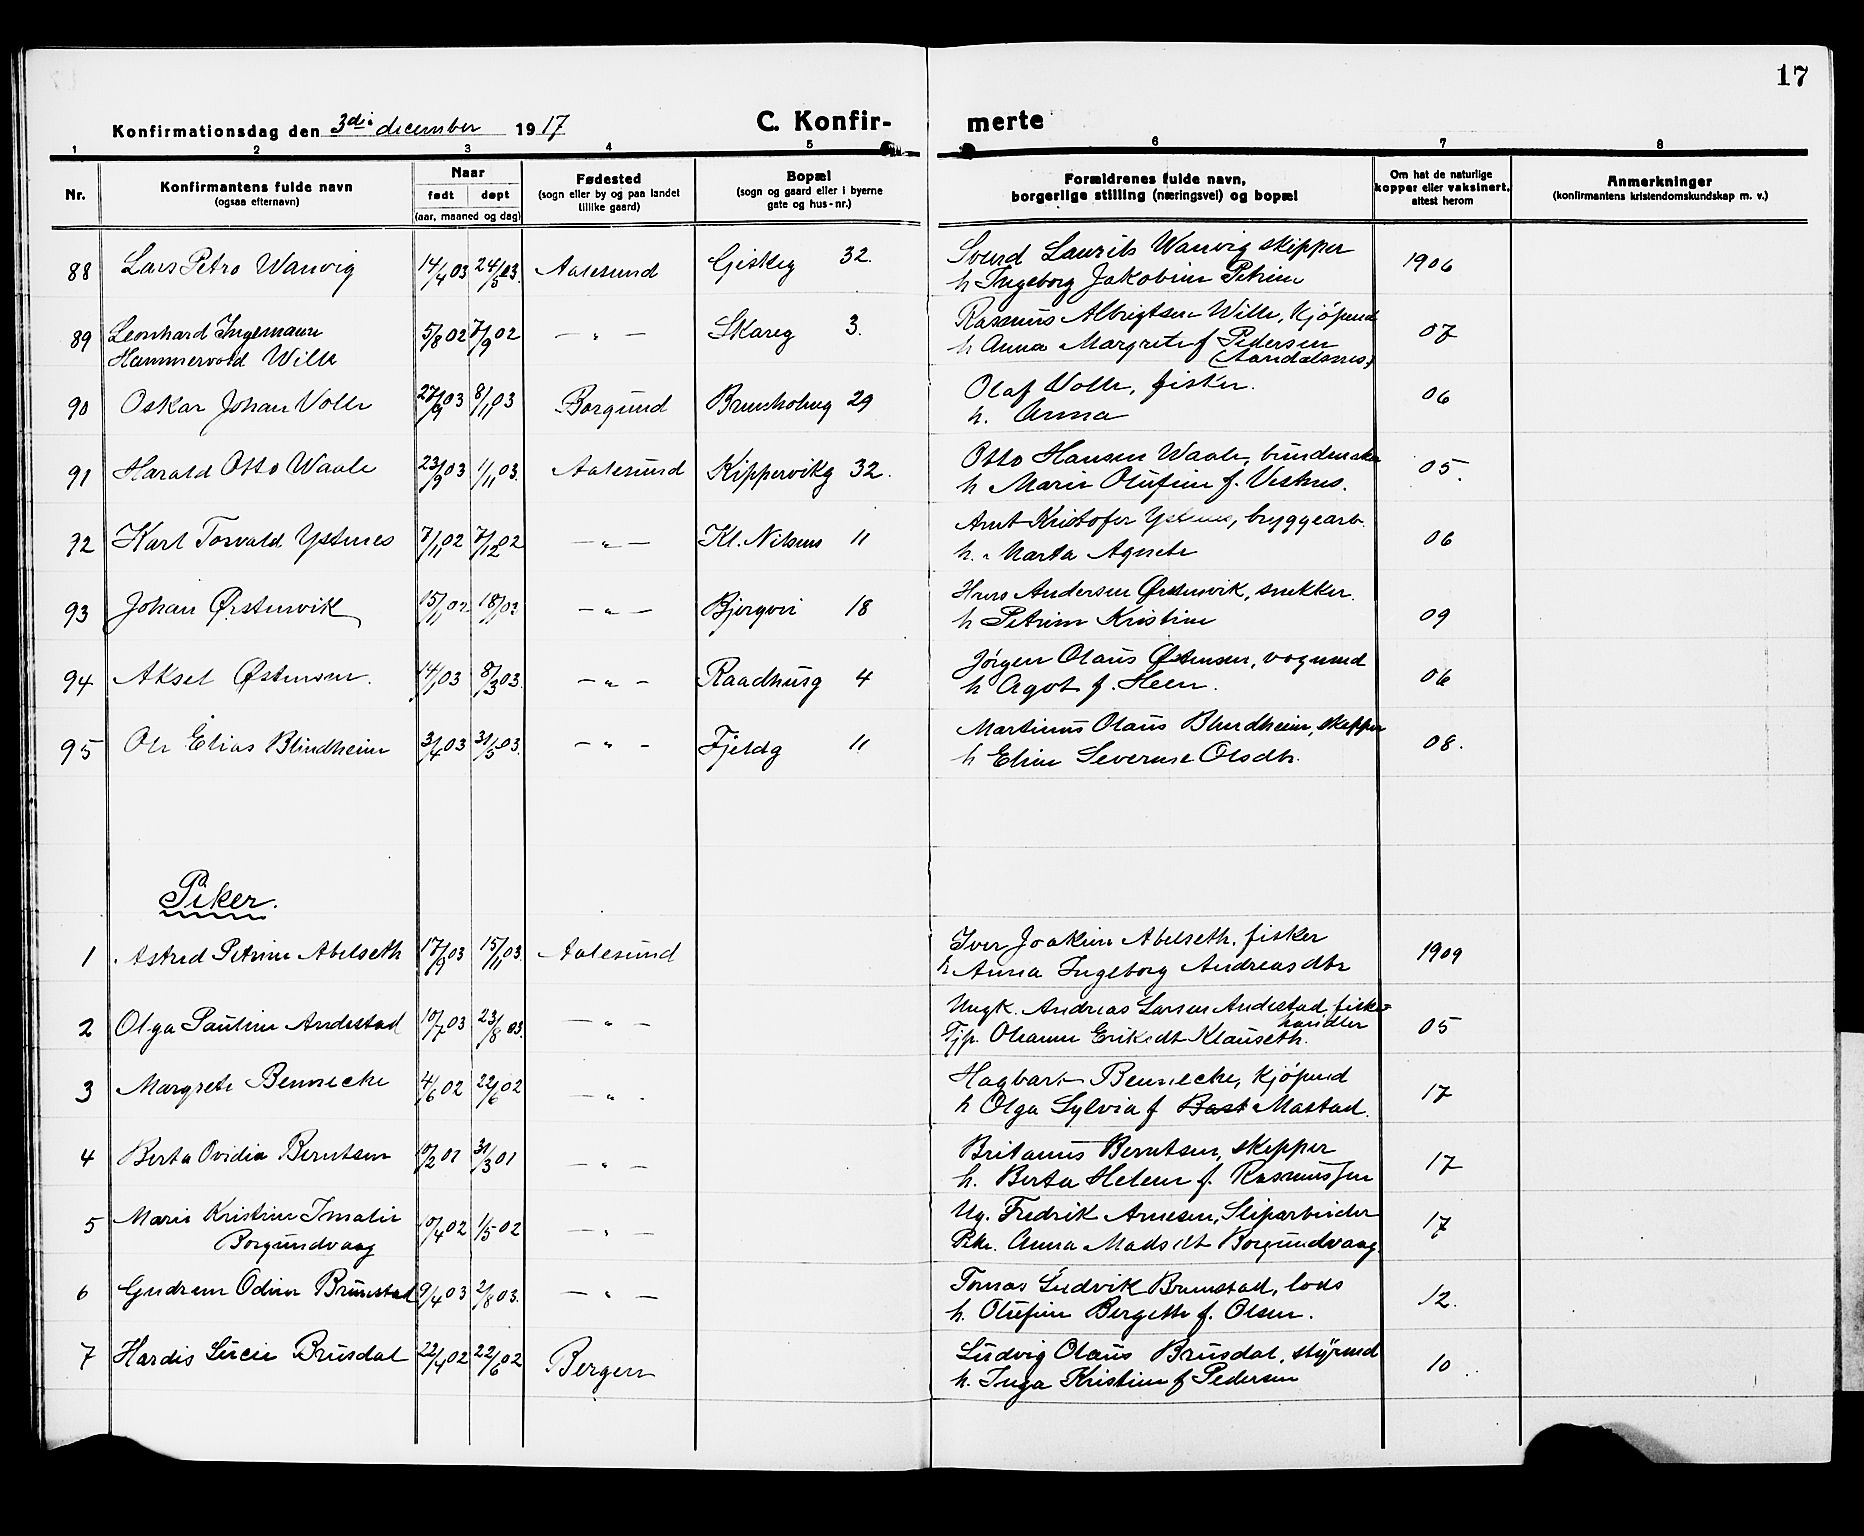 17
Konfirmationsdag den 3di december 1917
C. Konfir- merte
1 2 3 4 5 6 7 8
Nr.
Konfirmantens fulde navn
(ogsaa efternavn)
Naar
født døpt
(aar, maaned og dag)
Fødested
(sogn eller by og paa landet
tillike gaard)
Bopæl
(sogn og gaard eller i byerne
gate og hus-nr.)
Forældrenes fulde navn,
borgerlige stilling (næringsvei) og bopæl
Om hat de naturlige
kopper eller vaksinert,
attest herom
Anmerkninger
(konfirmantens kristendomskundskap m. v.)
88 Lars Petro Wanvig 14/4 03 24/5 03. Aalesund Giskeg 32. Svend Laurits Wanvig skipper 1906
h Ingeborg Jakobine Petrine
89 Leonhard Ingemann 5/8 02 7/9 02 — " — Skareg 3. Rasmus Albrigtsen Wille, kjøpmd 07
Hammervold Wille h Anna Margrete f Pedersen
(Aandalsnes)
90 Oskar Johan Volle 27/9 03 8/11 03 Borgund Brunholmg 29 Olaf Volle, fisker. 06
h. Anna
91 Harald Otto Waale 23/9 03 1/11 03. Aalesund Kippervikg 32. Otto Hansen Waale, bundmaker 05.
h Marie Olufine f. Veshus.
92 Karl Torvald Ystenes 7/11 02 7/12 02 — " — Kl. Nilsens 11 Arnt Kristofer Ystenes, bryggearb. 06
h. Marta Agnete
93 Johan Ørstenvik 15/11 02 — " — Bjergvei 18 Hans Andersen Ørstenvik, snekker. 09
h Petrine Kristine
94 Aksel Østensen. 14/1 03 8/3 03. — " — Raadhusg 4 Jørgen Olaus Østensen, vognmd 06
h Agot f. Heen.
95 Ole Elias Blindheim 3/4 03 31/5 03. — " — Fjeldg 11 Martinus Olaus Blindheim, skipper 08.
h Eline Severine Olsdtr.
Piker.
1 Astrid Petrine Abelseth 17/9 03 15/11 03. Aalesund Iver Joakim Abelseth, fisker 1909
h Anna Ingeborg Andreasdtr
2 Olga Pauline Andestad 10/7 03 23/8 03. — " — Ungk. Andreas Larsen Andestad, fiske-
handler 05
Tjp. Oleanne Eriksdt Klauseth.
3 Margrete Bennecke 4/6 02 22/6 02 — " - Hagbart Bennecke, kjøpmd 17
h Olga Sylvia f Bast Mastad.
4 Berta Ovidia Berntsen 10/2 01 31/3 01 — " — Britanus Berntsen, skipper 17
h. Berta Helene f. Rasmussen
5 Marie Kristine Imalie 10/4 02 1/5 02 — " — Ug. Fredrik Arnesen, Sliparbeider 17
Borgundvaag Pike. Anna Madsdt Borgundvaag.
6 Gudrun Odine Brunstad 9/4 03 2/8 03. — " — Tomas Ludvik Brunstad, lods 12.
h. Olufine Bergitte f. Olsen.
7 Hardis Lucie Brusdal 22/4 02 22/6 02 Bergen Ludvig Olaus Brusdal, styrmd 10
h. Inga Kristine f Pedersen